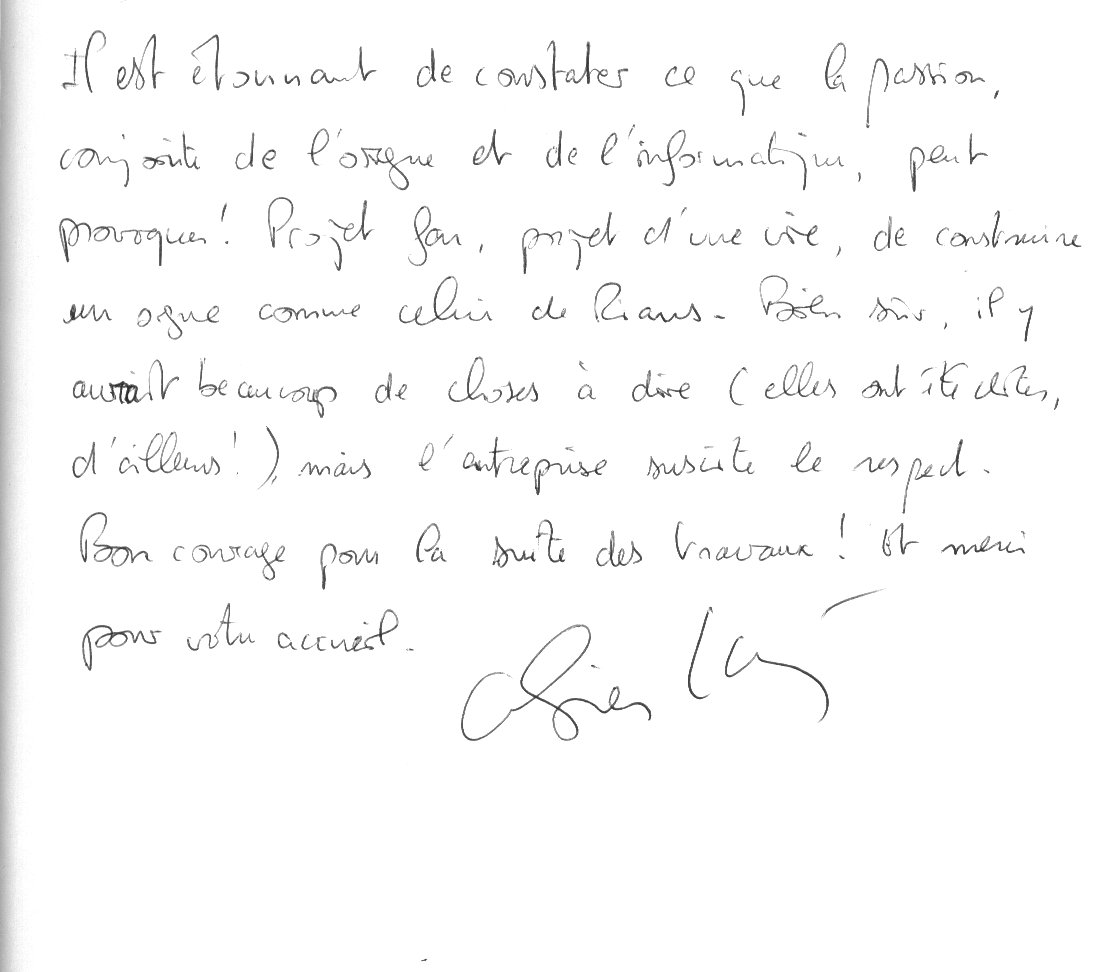 Il est étonnant de constater ce que la passion,
conjointe de l'orgue et de l'informatique, peut
provoquer! Projet fou, projet d'une vie, de construire
un orgue comme celui de Rians. Bien sûr, il y
aurait beaucoup de choses à dire (elles ont été dites,
d'ailleurs!), mais l'entreprise suscite le respect.
Bon courage pour la suite des travaux! Et merci
pour votre accueil.